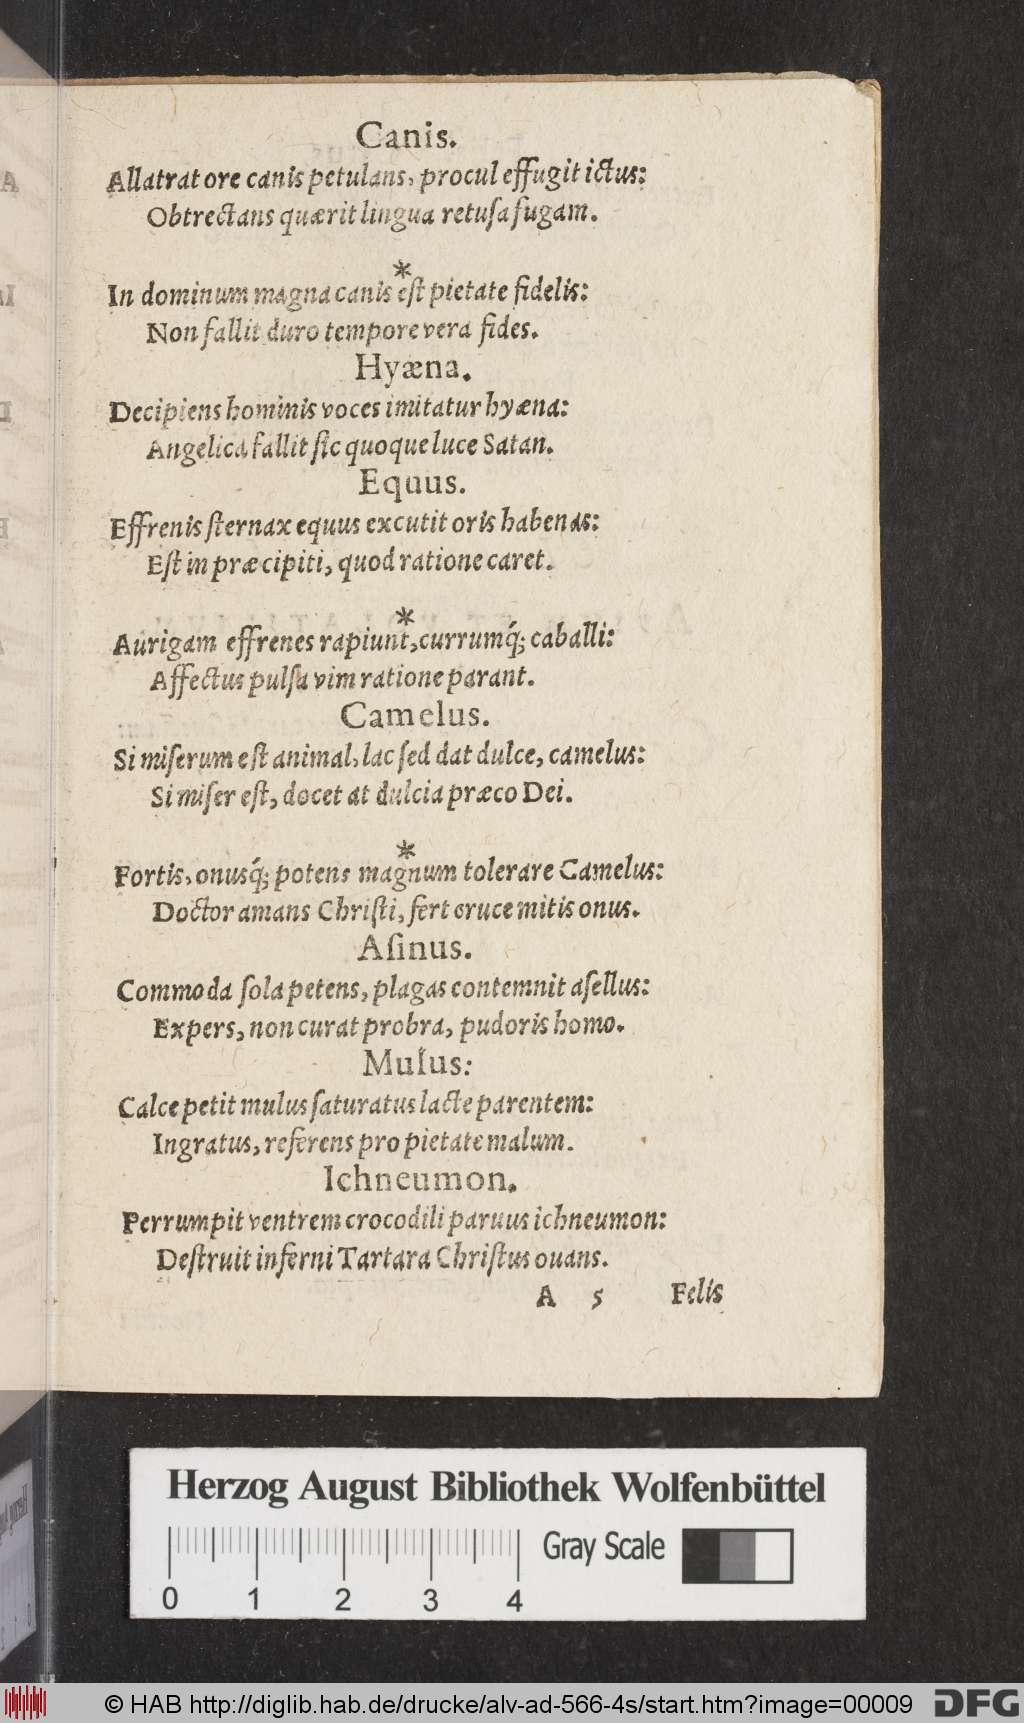 Canis.
Allatrat ore canis petulans, procul effugit ictus:
Obtrectans quærit lingua retusa fugam.
*
In dominum magna canis est pietate fidelis:
Non fallit duro tempore vera fides.
Hyæna.
Decipiens hominis voces imitatur hyæna:
Angelica fallit sic quoque luce Satan.
Equus.
Effrenis sternax equus excutit oris habenas:
Est in præcipiti, quod ratione caret.
*
Aurigam effrenes rapiunt, currumq́; caballi:
Affectus pulsa vim ratione parant.
Camelus.
Si miserum est animal, lac sed dat dulce, camelus:
Si miser est, docet at dulcia præco Dei.
*
Fortis, onusq́; potens magnum tolerare Camelus:
Doctor amans Christi, fert cruce mitis onus.
Asinus.
Commoda sola petens, plagas contemnit asellus:
Expers, non curat probra, pudoris homo.
Mulus:
Calce petit mulus saturatus lacte parentem:
Ingratus, referens pro pietate malum.
Ichneumon.
Perrumpit ventrem crocodili paruus ichneumon:
Destruit inferni Tartara Christus ouans.
A 5 Felis
Herzog August Bibliothek Wolfenbüttel
Gray Scale
0 1 2 3 4
© HAB http://diglib.hab.de/drucke/alv-ad-566-4s/start.htm?image=00009
DFG